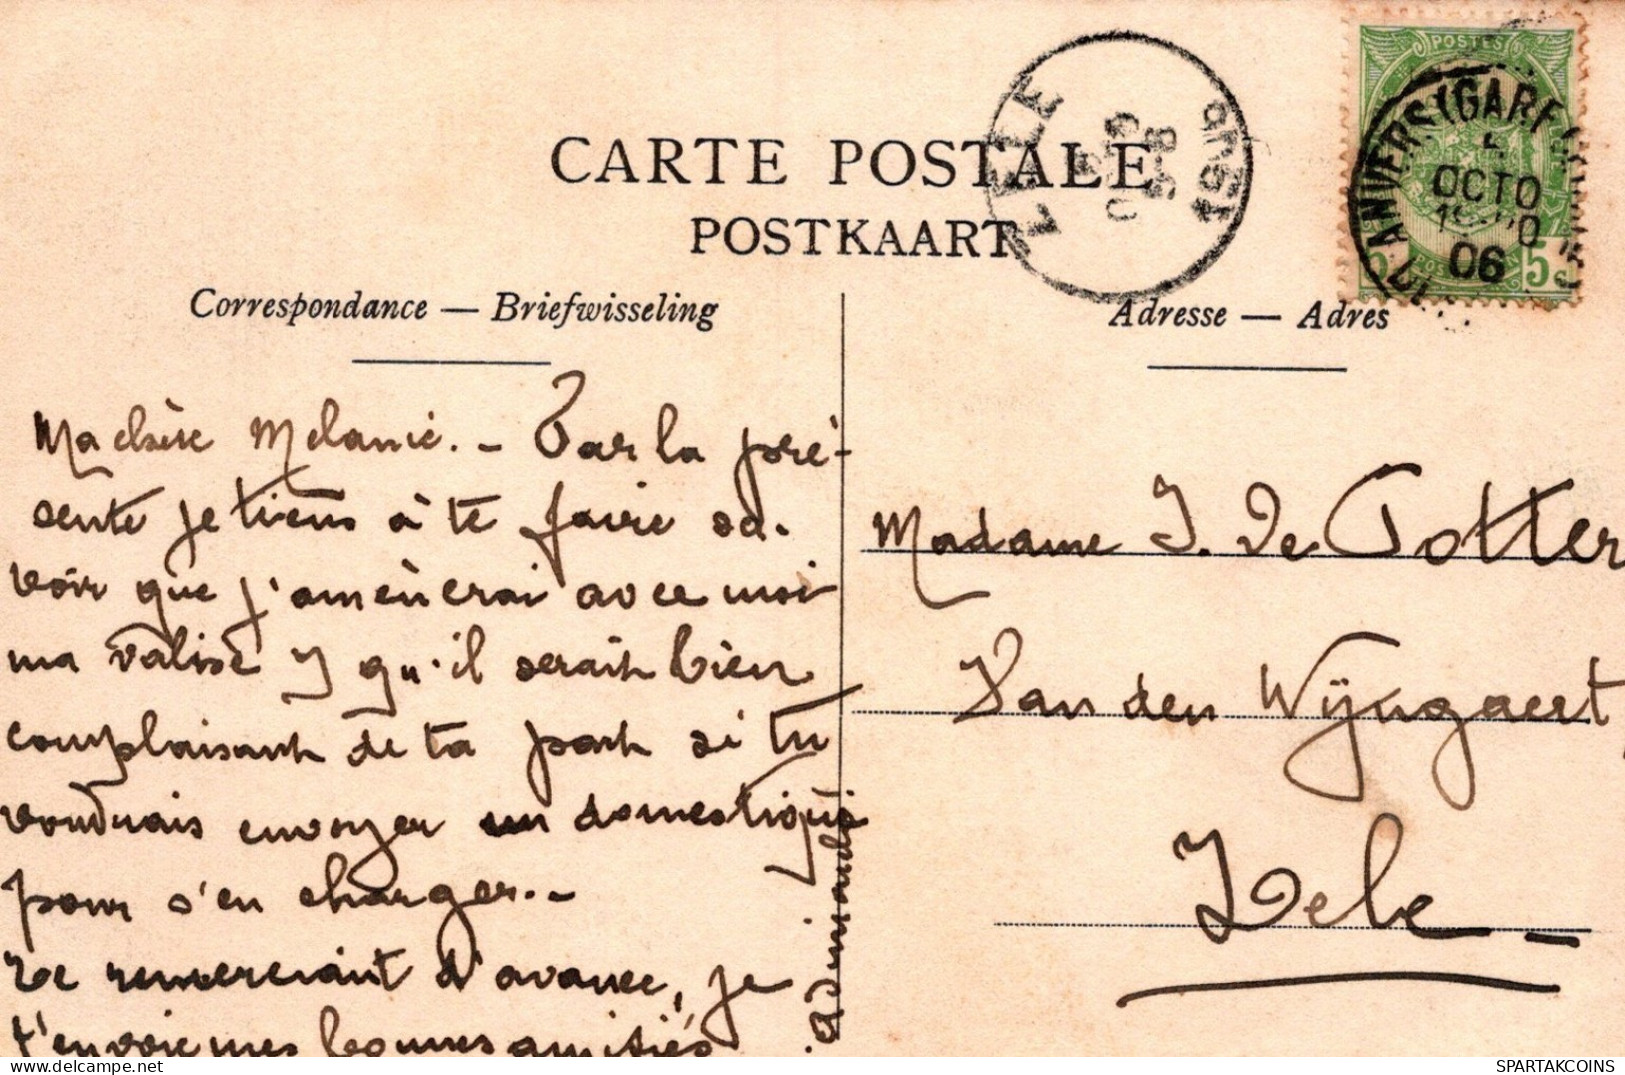 CARTE POSTALE
POSTKAART
Correspondance — Briefwisseling
Ma chère Melanie. – Par la pré-
sente je tiens à te faire sa-
voir que j'amènerai avec moi
ma valise & qu'il serait bien
complaisant de ta part si tu
voudrais envoyer un domestique
pour s'en charger. –
Te remerciant d'avance, je
t'envoie mes bonnes amitiés
ZELE
8
ANVERS (GARE
OCTO
06
POSTES
5
5c
Adresse — Adres
Madame J. De Potter
Van den Wijngaert
Zele –
SPARTAKCOINS